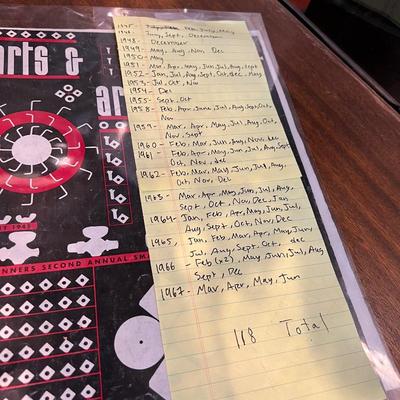 arts &
ar
1945-
Feb, July, May
1948- Juny, Sept, December
1948- December
1949- May, Aug, Nov, Dec
1950- May
1951- Mar, Apr, May, Jun, Jul, Aug, Sept
1952- Jan, Jul, Aug, Sept, Oct, dec, May
1953- Jul, Oct, Nov
1954- Dec
1955- Sept, Oct
1958- Feb, Apr, June, Jul, Aug, Sept, Oct,
Nov
1959- Mar, Apr, May, Jun, Jul, Aug, Oct,
Nov, Sept
1960- Feb, Mar, Jun, Aug, Nov, dec
1961- Feb, Apr, May, Jun, Jul, Aug, Sept
Oct, Nov, dec
1962- Feb, Mar, May, Jun, Jul, Aug,
Oct, Nov, Dec
1963- Mar, Apr, May, Jun, Jul, Aug,
Sept, Oct, Nov, Dec, Jan
1964- Jan, Feb, Apr, May, Jun, Jul,
Aug, Sept, Oct, Nov, Dec
1965, Jan, Feb, Mar, Apr, May, Jun,
Jul, Aug, Sept, Oct, dec
1966 - Feb (x2), May, Jun, Jul, Aug
Sept, Dec
1967- Mar, Apr, May, Jun
118 Total
NNERS SECOND ANNUAL SMA